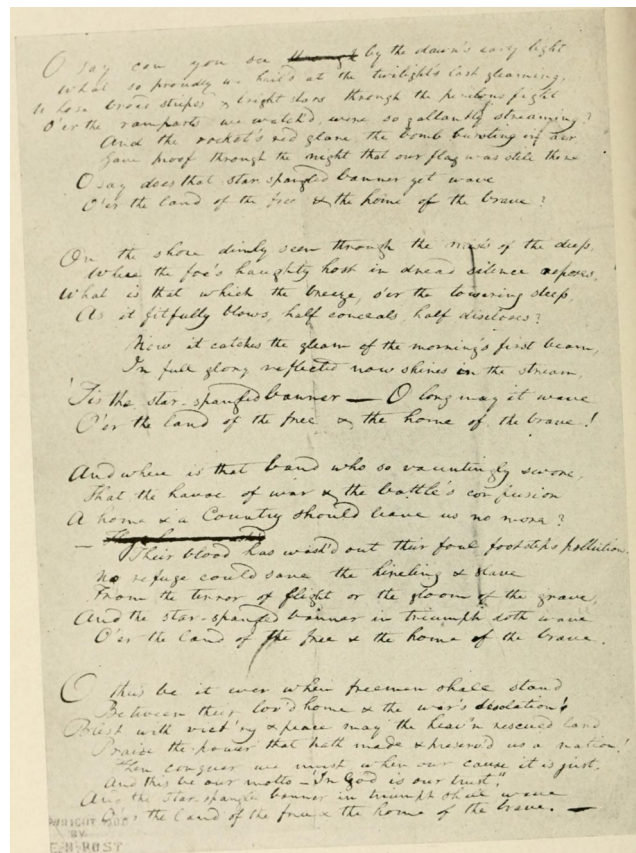 O say can you see ~~through~~ by the dawn's early light
What so proudly we hail'd at the twilight's last gleaming,
Whose broad stripes & bright stars through the perilous fight
O'er the ramparts we watch'd, were so gallantly streaming?
And the rocket's red glare, the bomb bursting in air,
Gave proof through the night that our flag was still there
O say does that star-spangled banner yet wave
O'er the land of the free & the home of the brave?
On the shore dimly seen through the mists of the deep,
Where the foe's haughty host in dread silence reposes,
What is that which the breeze, o'er the towering steep,
As it fitfully blows, half conceals half discloses?
Now it catches the gleam of the morning's first beam,
In full glory reflected now shines in the stream,
'Tis the star-spangled banner — O long may it wave
O'er the land of the free & the home of the brave!
And where is that band who so vauntingly swore,
That the havoc of war & the battle's confusion
A home & a Country should leave us no more?
—
Their blood has wash'd out their foul footsteps pollution.
No refuge could save the hireling & slave
From the terror of flight or the gloom of the grave,
And the star-spangled banner in triumph doth wave
O'er the land of the free & the home of the brave.
O thus be it ever when freemen shall stand
Between their lov'd home & the war's desolation!
Blest with vict'ry & peace may the heav'n rescued land
Praise the power that hath made & preserv'd us a nation!
Then conquer we must, when our cause it is just,
And this be our motto — "In God is our trust,"
And the star-spangled banner in triumph shall wave
O'er the land of the free & the home of the brave. —
BY